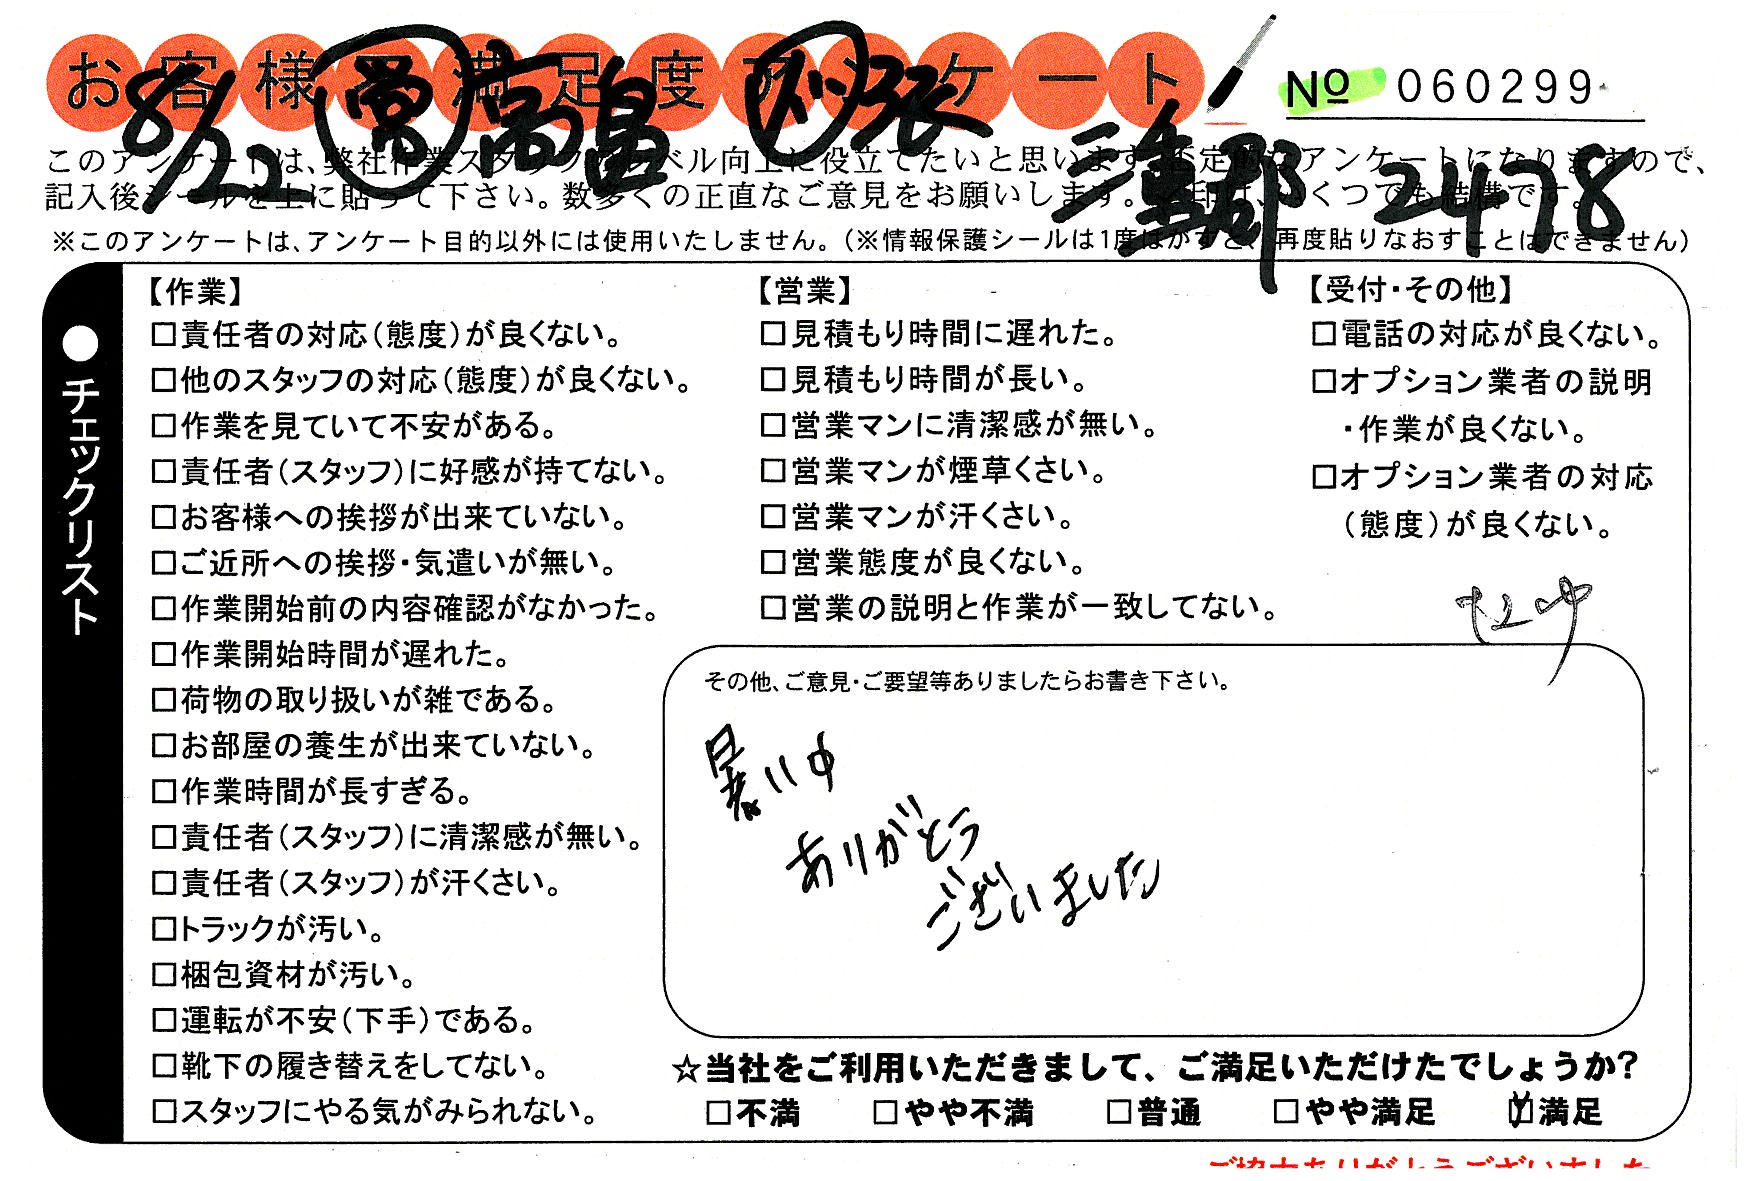 お客様満足度アンケート
№ 060299
8/22 営 高畠 刈衣
三重郡 2478
このアンケートは、弊社作業スタッフのレベル向上に役立てたいと思います。否定的なアンケートになりますので、
記入後シールを上に貼って下さい。数多くの正直なご意見をお願いします。
※このアンケートは、アンケート目的以外には使用いたしません。（※情報保護シールは1度はがすと、再度貼りなおすことはできません）
●チェックリスト
【作業】
□責任者の対応（態度）が良くない。
□他のスタッフの対応（態度）が良くない。
□作業を見ていて不安がある。
□責任者（スタッフ）に好感が持てない。
□お客様への挨拶が出来ていない。
□ご近所への挨拶・気遣いが無い。
□作業開始前の内容確認がなかった。
□作業開始時間が遅れた。
□荷物の取り扱いが雑である。
□お部屋の養生が出来ていない。
□作業時間が長すぎる。
□責任者（スタッフ）に清潔感が無い。
□責任者（スタッフ）が汗くさい。
□トラックが汚い。
□梱包資材が汚い。
□運転が不安（下手）である。
□靴下の履き替えをしてない。
□スタッフにやる気がみられない。
【営業】
□見積もり時間に遅れた。
□見積もり時間が長い。
□営業マンに清潔感が無い。
□営業マンが煙草くさい。
□営業マンが汗くさい。
□営業態度が良くない。
□営業の説明と作業が一致してない。
【受付・その他】
□電話の対応が良くない。
□オプション業者の説明
・作業が良くない。
□オプション業者の対応
（態度）が良くない。
その他、ご意見・ご要望等ありましたらお書き下さい。
暑い中
ありがとう
ございました
☆当社をご利用いただきまして、ご満足いただけたでしょうか？
□不満 □やや不満 □普通 □やや満足 ☑満足
ご協力ありがとうございました